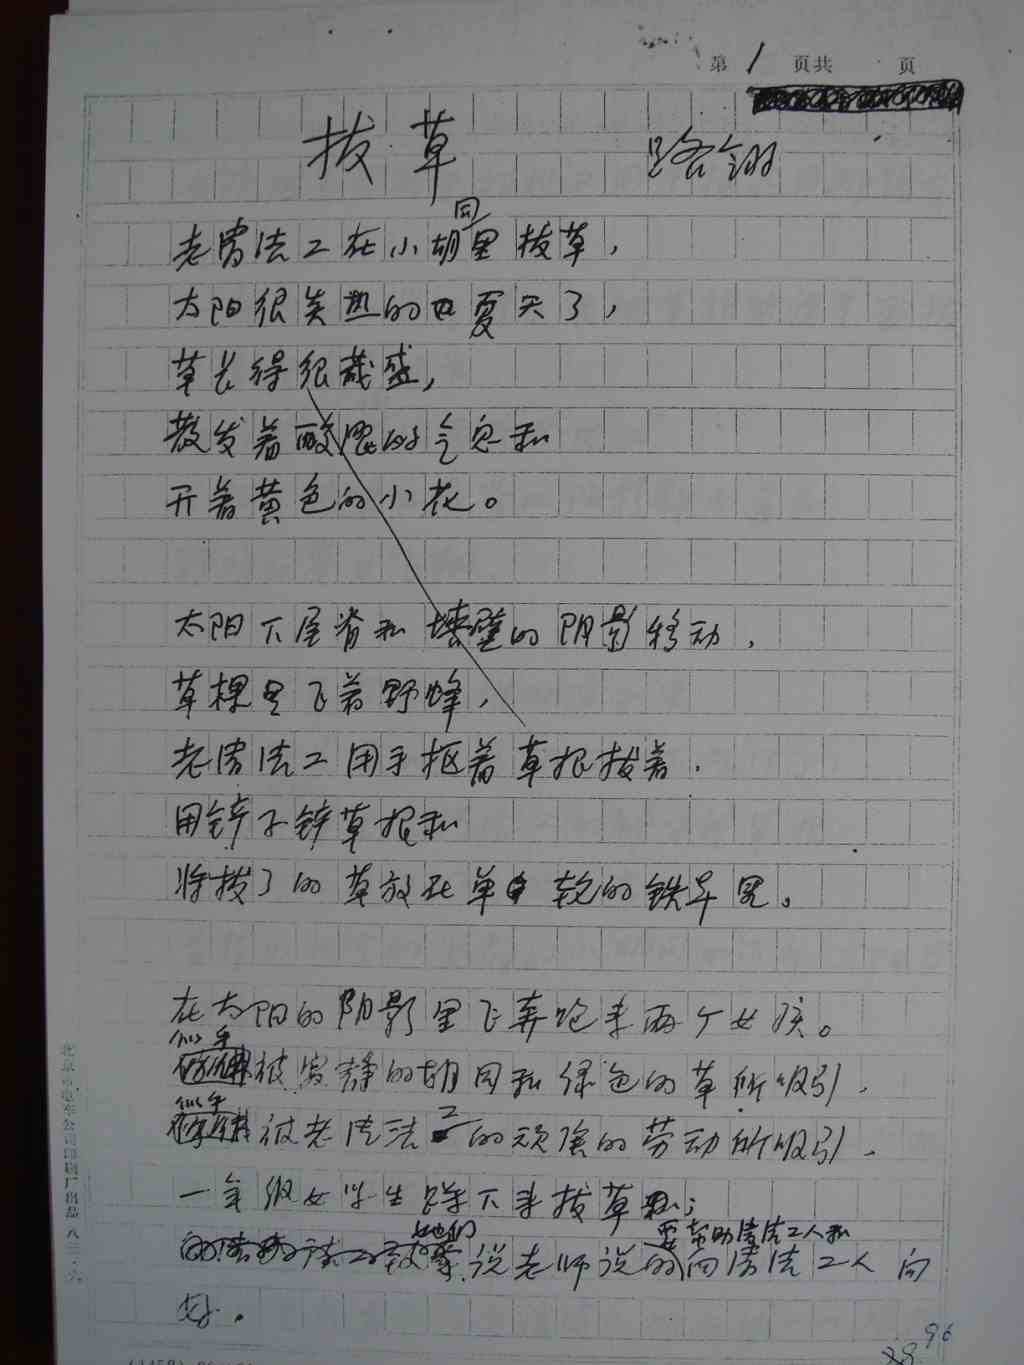 第 1 页共 页
拔草 路翎
老清洁工在小胡同里拔草，
太阳很炎热的夏天了，
草长得很茂盛，
散发着酸涩的气息和
开着黄色的小花。
太阳下屋脊和墙壁的阴影移动，
草棵里飞着野蜂，
老清洁工用手抠着草根拔着，
用铲子铲草根和
将拔了的草放在单轮的铁车里。
在太阳的阴影里飞奔跑来两个女孩。
似乎被寂静的胡同和绿色的草所吸引，
似乎被老清洁工的顽强的劳动所吸引，
一年级女学生蹲下来拔草；
她们说老师说的要帮助清洁工人和向清洁工人问
好。
北京市电车公司印刷厂出品 八三·六
96
28